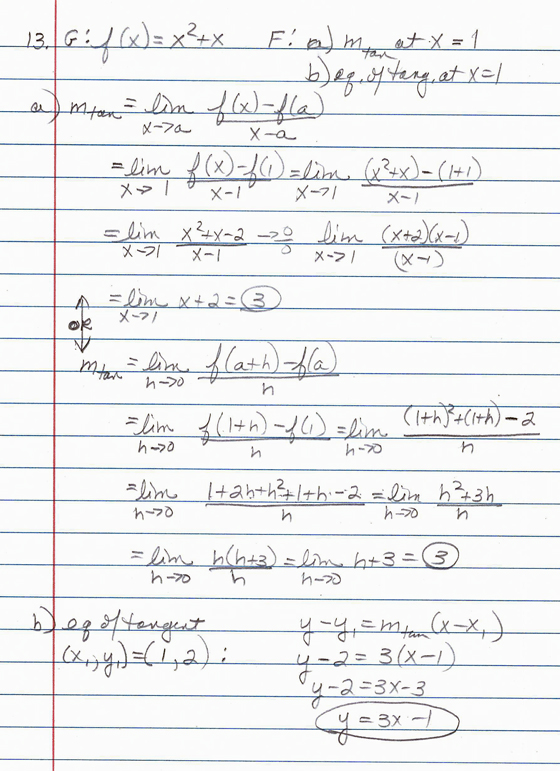 13. G: f(x) = x²+x F: a) m_tan at x = 1
b) eq. of tang. at x=1
a) m_tan = lim_{x→a} (f(x)-f(a))/(x-a)
= lim_{x→1} (f(x)-f(1))/(x-1) = lim_{x→1} ((x²+x)-(1+1))/(x-1)
= lim_{x→1} (x²+x-2)/(x-1) → 0/0 lim_{x→1} ((x+2)(x-1))/(x-1)
= lim_{x→1} x+2 = 3
OR
m_tan = lim_{h→0} (f(a+h)-f(a))/h
= lim_{h→0} (f(1+h)-f(1))/h = lim_{h→0} ((1+h)²+(1+h)-2)/h
= lim_{h→0} (1+2h+h²+1+h-2)/h = lim_{h→0} (h²+3h)/h
= lim_{h→0} h(h+3)/h = lim_{h→0} h+3 = 3
b) eq of tangent y-y₁ = m_tan(x-x₁)
(x₁,y₁)=(1,2): y-2 = 3(x-1)
y-2=3x-3
y = 3x-1